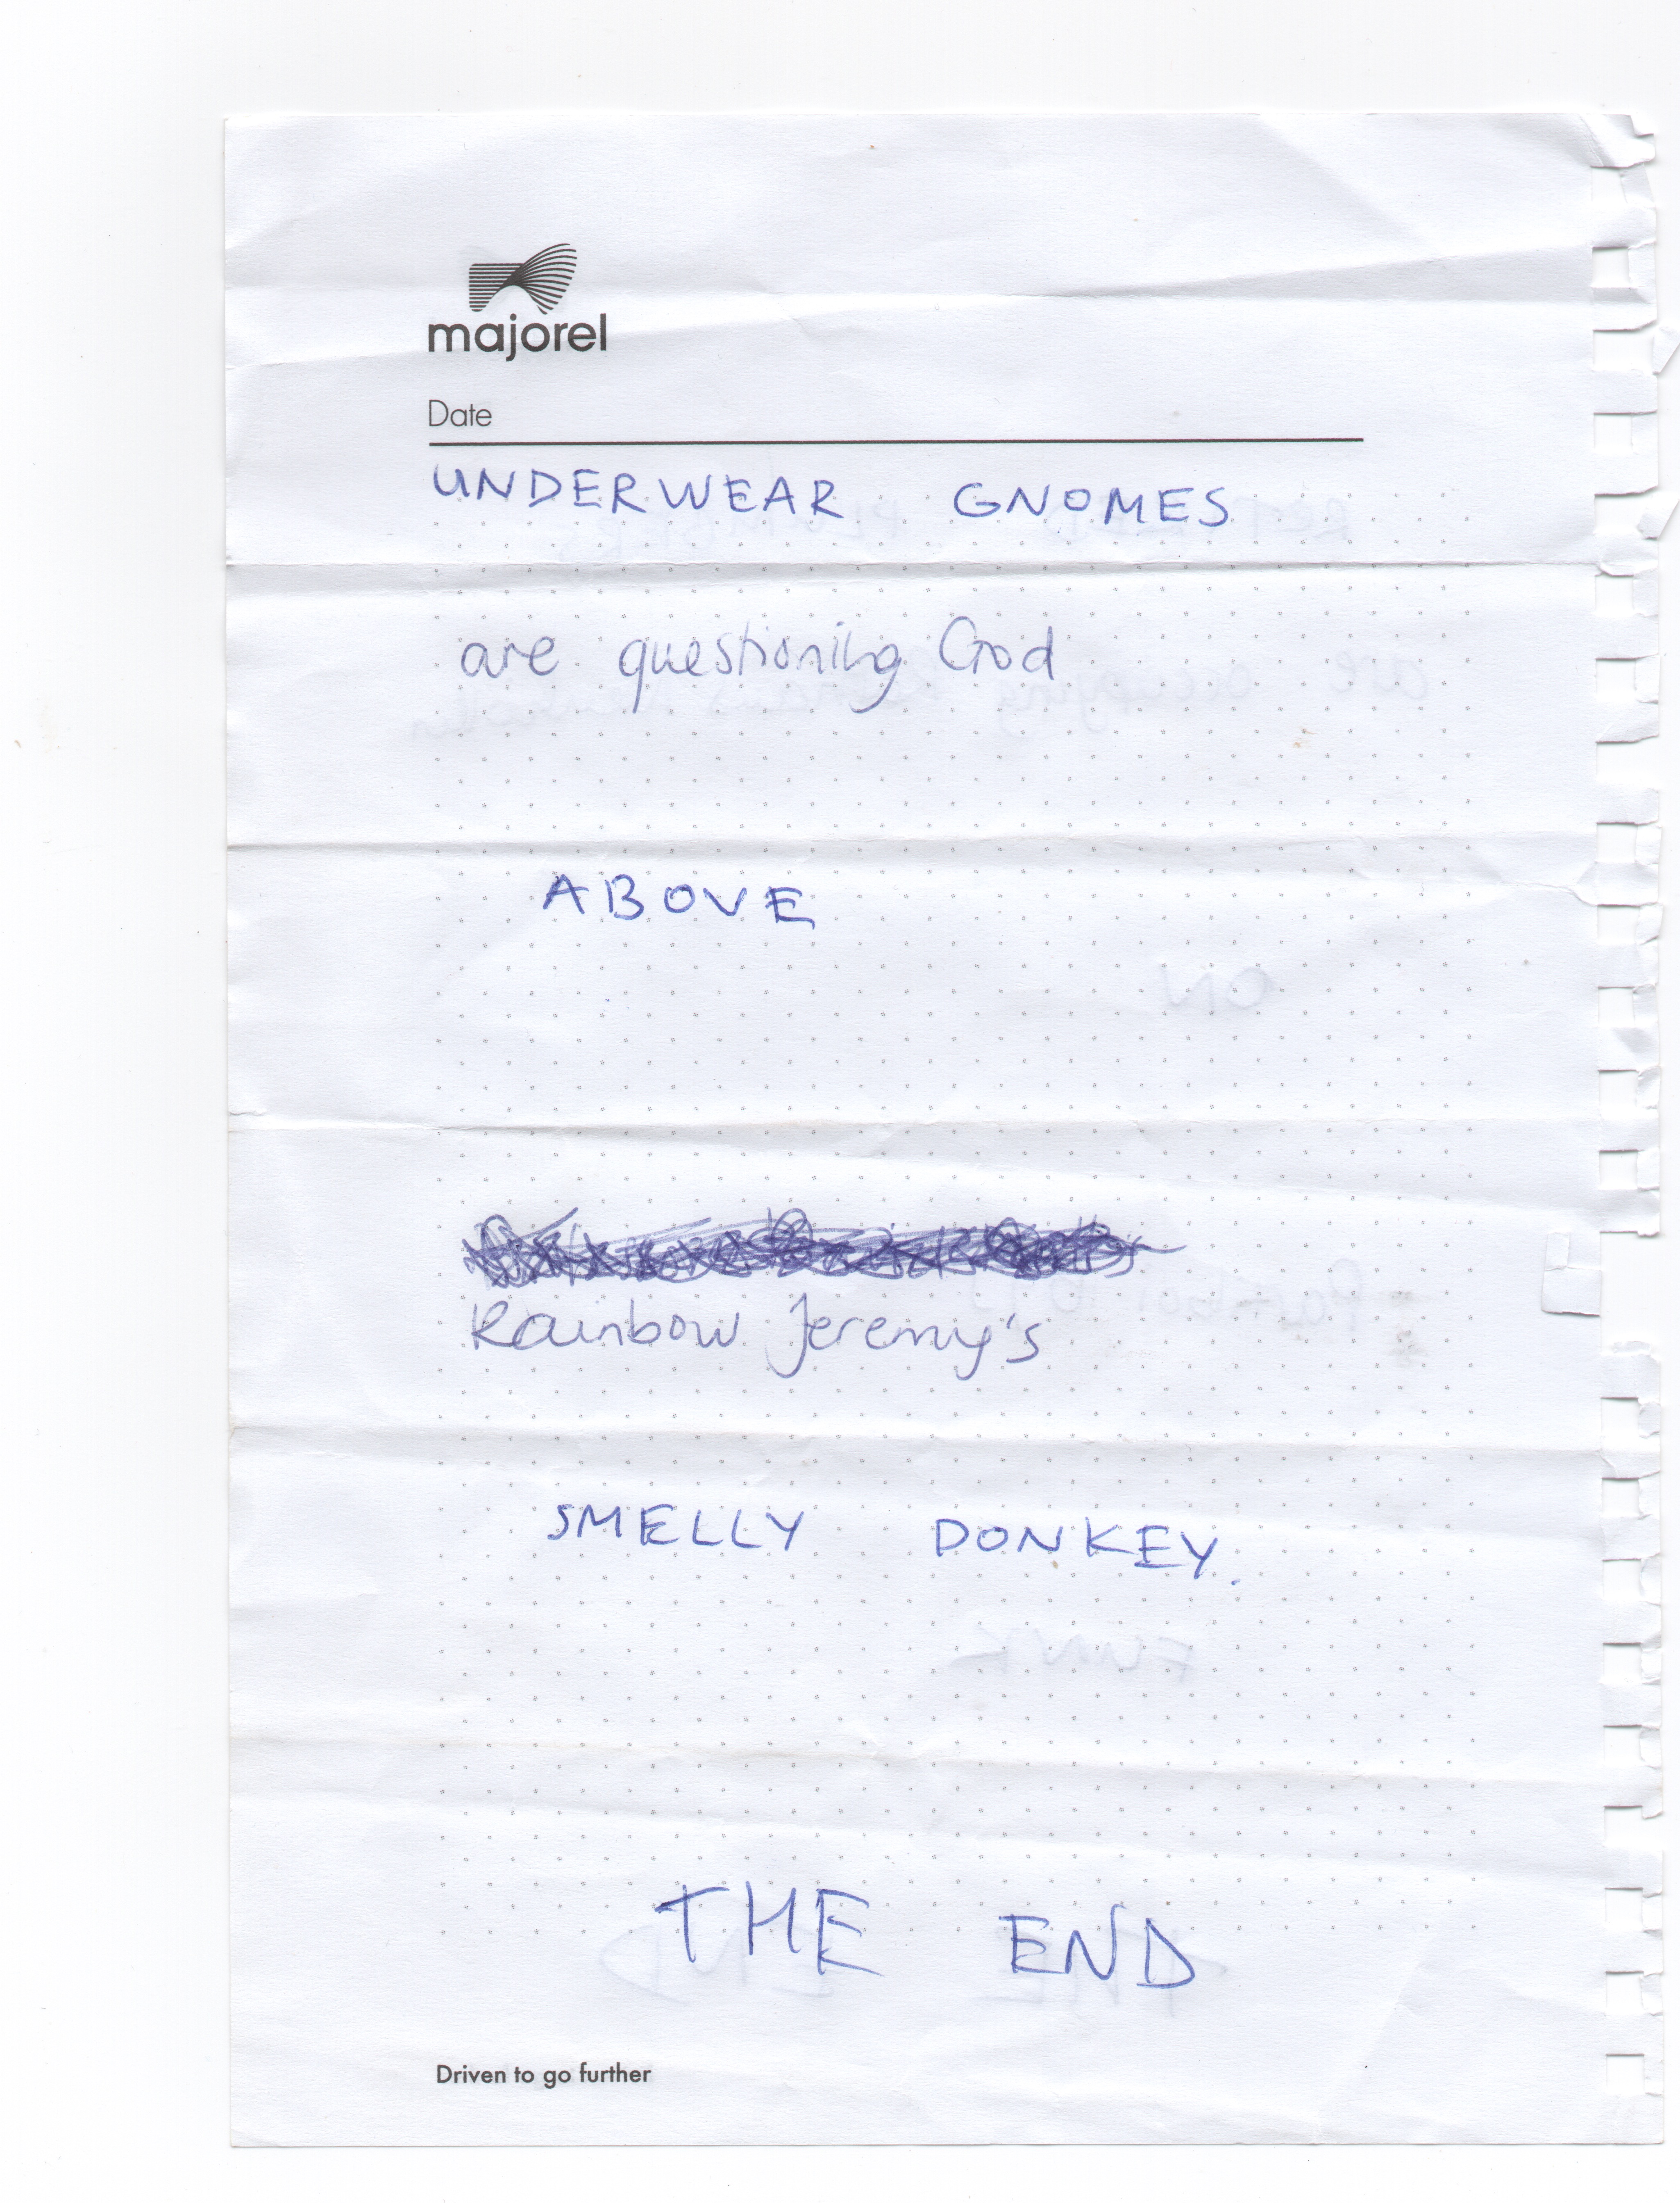 majorel
Date
UNDERWEAR GNOMES
are questioning God
ABOVE
Rainbow Jeremy's
SMELLY DONKEY.
THE END
Driven to go further